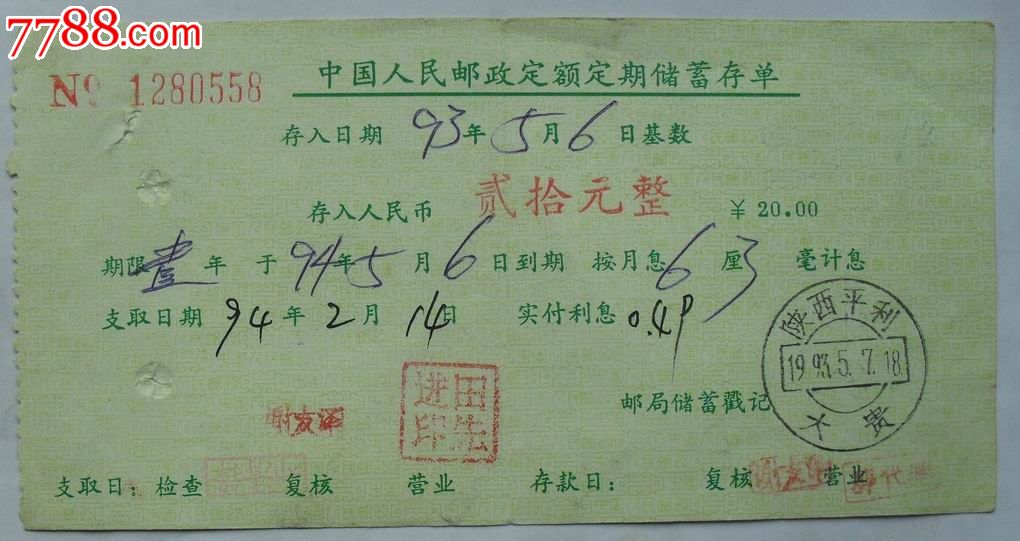 7788.com
中国人民邮政定额定期储蓄存单
№ 1280558
存入日期 93年5月6日基数
存入人民币 贰拾元整 ￥20.00
期限壹年 于 94年5月6日到期 按月息6厘3毫计息
支取日期 94年2月14日 实付利息 0.49
陕西平利
1993.5.7.18
大贵
邮局储蓄戳记
支取日：检查 复核 营业 存款日： 复核 营业